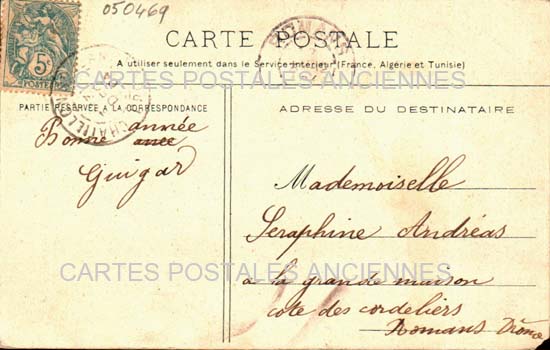 050469
CARTE POSTALE
A utiliser seulement dans le Service Intérieur (France, Algérie et Tunisie)
5c
POSTES
CHATILLON
CARTES POSTALES ANCIENNES
PARTIE RÉSERVÉE A LA CORRESPONDANCE
ADRESSE DU DESTINATAIRE
année
Bonne anée
Guigar
Mademoiselle
Seraphine Andréas
CARTES POSTALES ANCIENNES
à la grande maison
cote des cordeliers
Romans Drôme